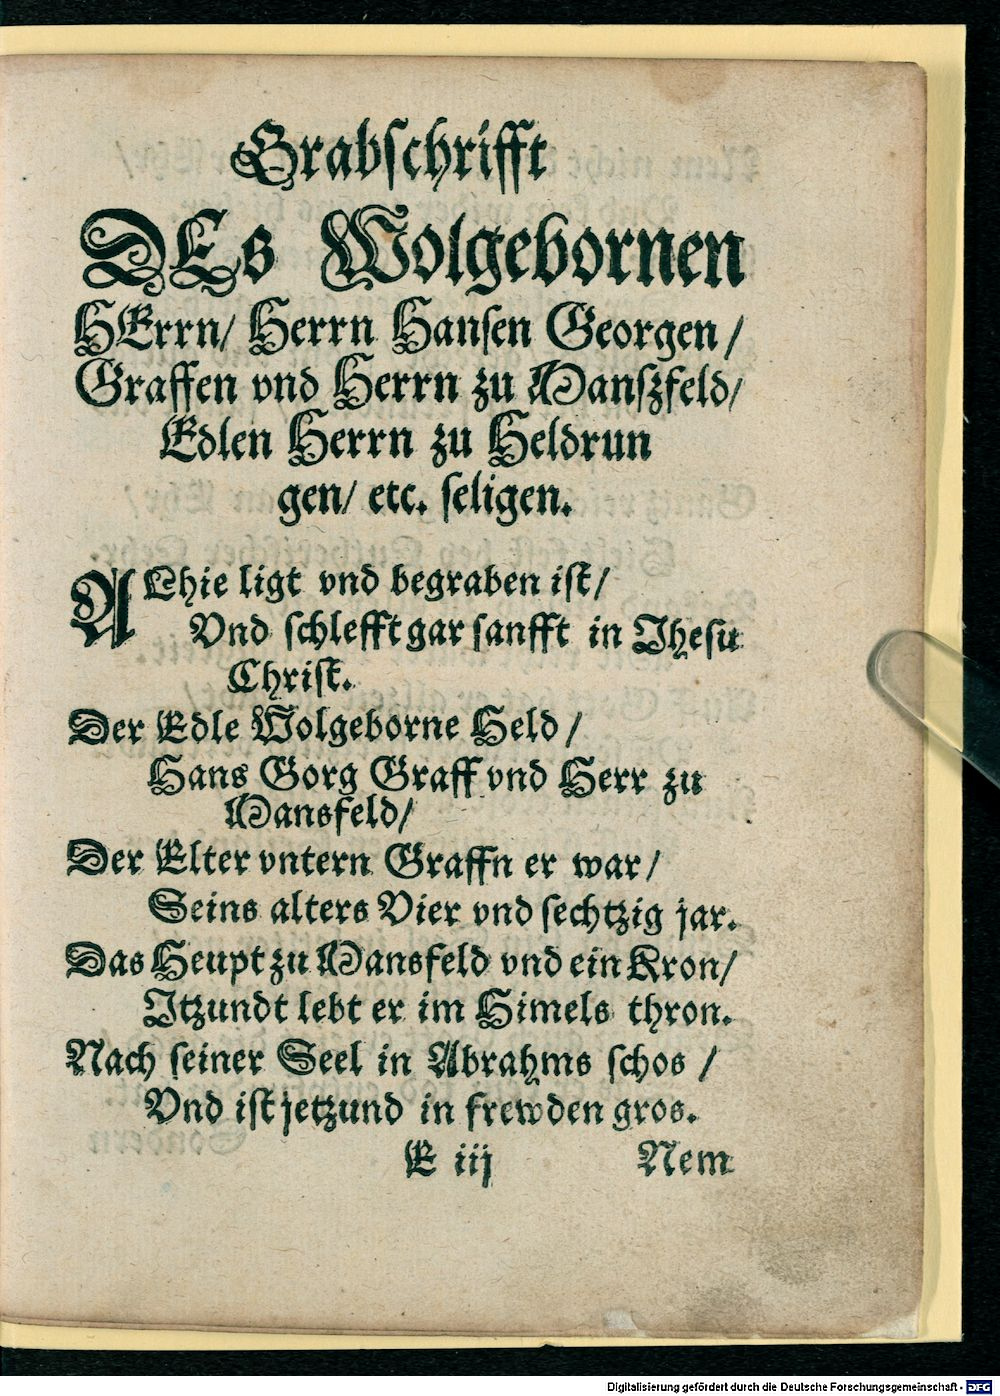 Grabschrifft
DEs Wolgebornen
HErrn/ Herrn Hansen Georgen/
Graffen vnd Herrn zu Manszfeld/
Edlen Herrn zu Heldrun
gen/ etc. seligen.
ALhie ligt vnd begraben ist/
Vnd schlefft gar sanfft in Jhesu
Christ.
Der Edle Wolgeborne Held/
Hans Gorg Graff vnd Herr zu
Mansfeld/
Der Elter vntern Graffn er war/
Seins alters Vier vnd sechtzig jar.
Das Heupt zu Mansfeld vnd ein Kron/
Jtzundt lebt er im Himels thron.
Nach seiner Seel in Abrahms schos/
Vnd ist jetzund in frewden gros.
E iij Nem
Digitalisierung gefördert durch die Deutsche Forschungsgemeinschaft - DFG